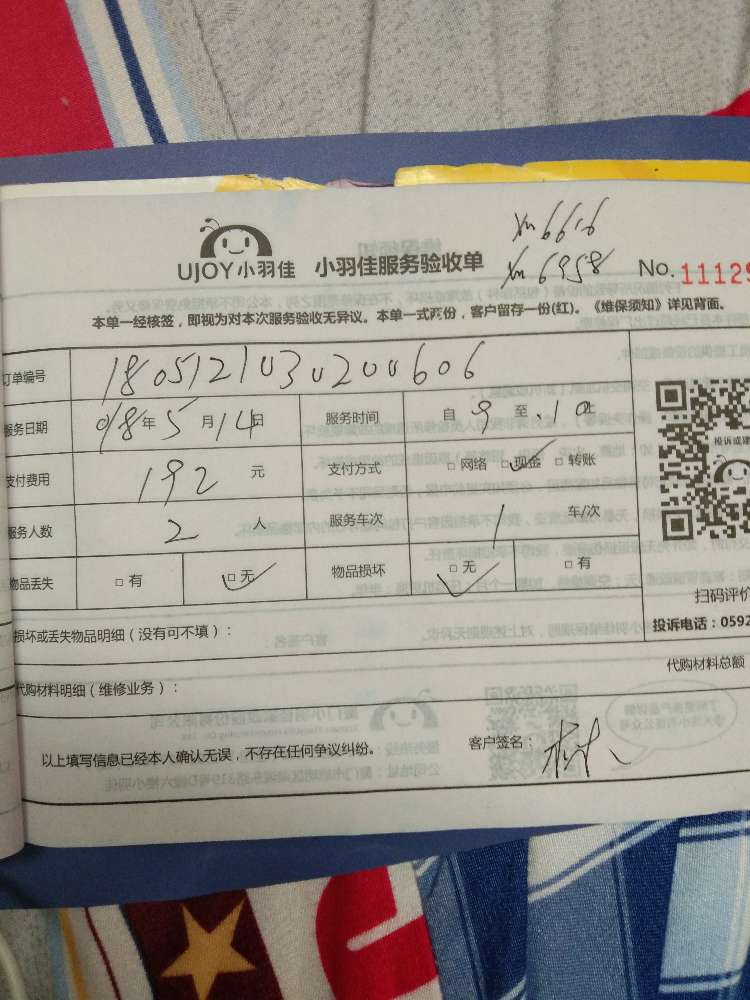 xm6616
xm6958
UJOY小羽佳 小羽佳服务验收单 No.11129
本单一经核签，即视为对本次服务验收无异议。本单一式两份，客户留存一份(红)。《维保须知》详见背面。
订单编号 1805121030200606
服务日期 018年5月14日 服务时间 自9至10
支付费用 192元 支付方式 □网络 □现金 □转账
服务人数 2人 服务车次 1车/次
物品丢失 □有 □无 物品损坏 □无 □有
投诉或建
扫码评价
投诉电话：0592
损坏或丢失物品明细（没有可不填）：
代购材料总额
代购材料明细（维修业务）：
以上填写信息已经本人确认无误，不存在任何争议纠纷。 客户签名：